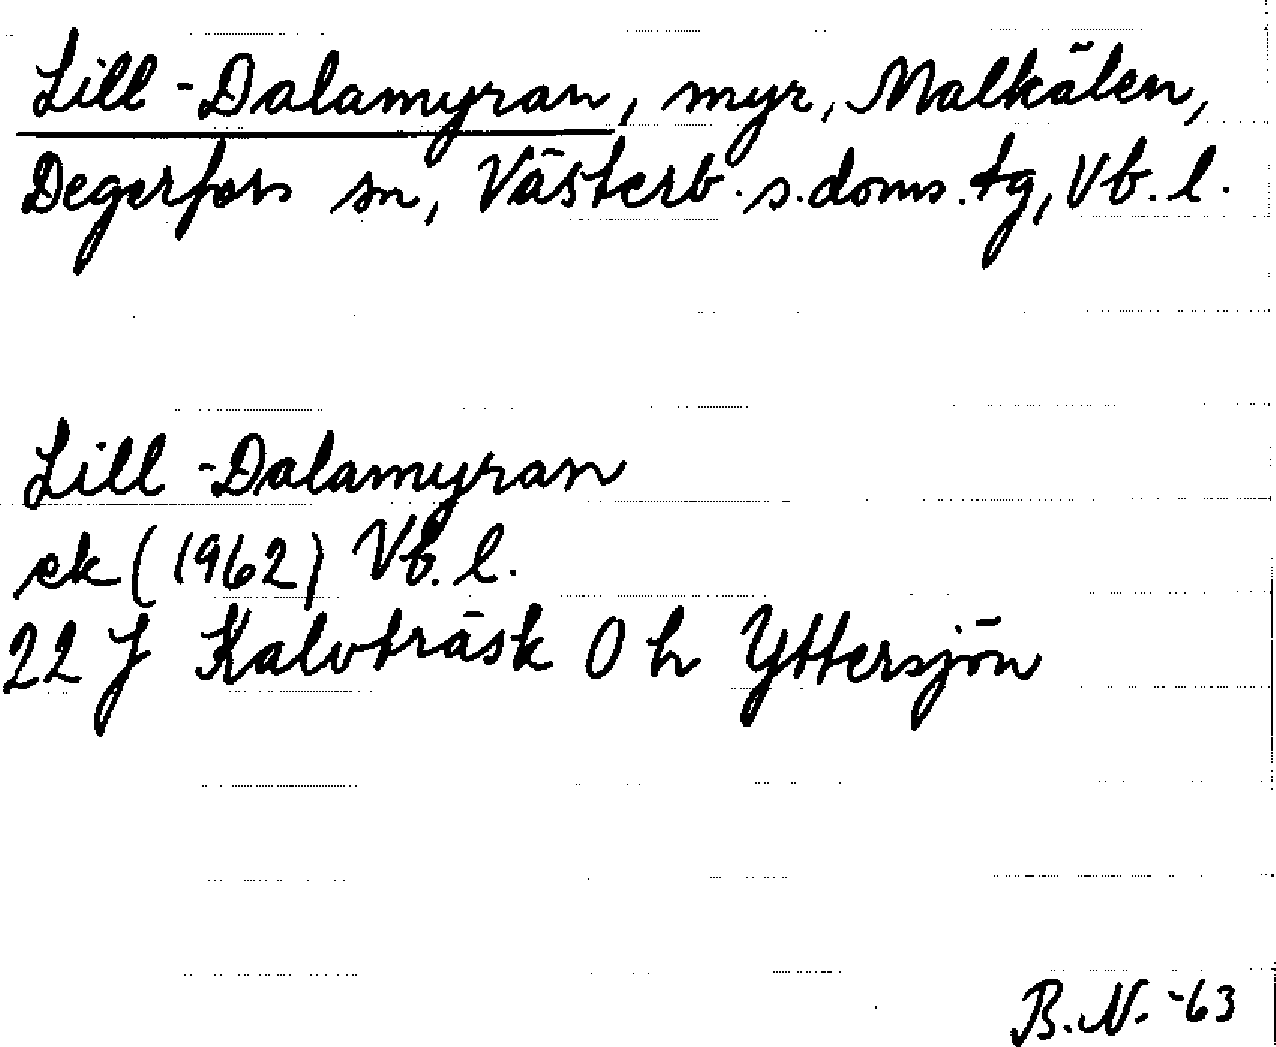 Lill-Dalamyran, myr, Malkälen,
Degerfors sn, Västerb. s. doms. tg, Vb. l.
Lill-Dalamyran
ek (1962) Vb. l.
22 J Kalvträsk 0 h Yttersjön
B.N. -63